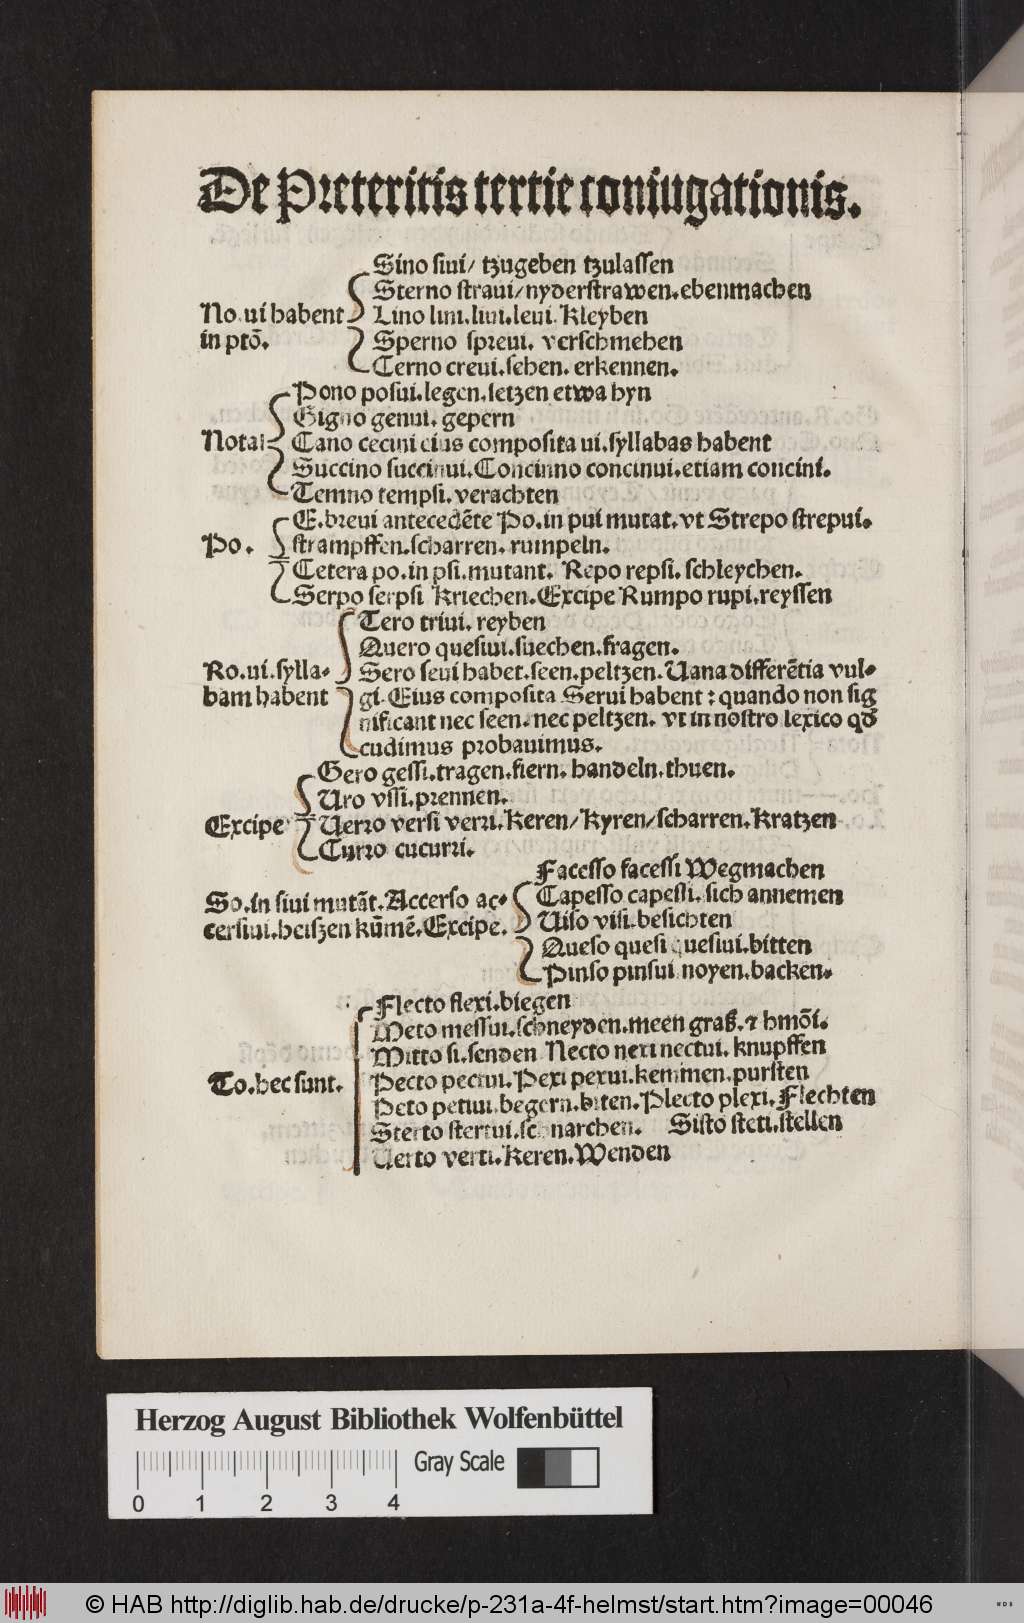 De Preteritis tertie coniugationis.
Sino siui/ tzugeben tzulassen
Sterno straui/nyderstrawen.ebenmachen
No.ui habent Lino lini.liui.leui.Kleyben
in ptō. Sperno spreui. verschmehen
Cerno creui.sehen. erkennen.
Pono posui.legen.setzen etwa hyn
Gigno genui. gepern
Nota Cano cecini eius composita ui.syllabas habent
Succino succinui.Concinno concinui.etiam concini.
Temno tempsi.verachten
E.breui antecedēte Po.in pui mutat.vt Strepo strepui.
Po. strampffen.scharren. rumpeln.
Cetera po.in psi.mutant. Repo repsi. schleychen.
Serpo serpsi Kriechen.Excipe Rumpo rupi.reyssen
Tero triui. reyben
Quero quesiui.suechen.fragen.
Ro.ui.sylla- Sero seui habet.seen.peltzen.Uana differētia vul-
bam habent gi.Eius composita Serui habent: quando non sig
nificant nec seen.nec peltzen. vt in nostro lexico qd
cudimus probauimus.
Gero gessi.tragen.fiern. handeln.thuen.
Uro vssi.prennen.
Excipe Uerro versi verri.Keren/Kyren/scharren.Kratzen
Curro cucurri.
Facesso facessi Wegmachen
So.in siui mutāt.Accerso ac- Capesso capessi.sich annemen
cersiui.heiszen kūmē.Excipe. Uiso visi.besichten
Queso quesi quesiui.bitten
Pinso pinsui noyen.backen.
Flecto flexi.biegen
Meto messui.schneyden.meen graß.⁊ hmōi.
Mitto si.senden Necto nexi nectui. knupffen
To.hec sunt. Pecto pectui.Pexi pexui.kemmen.pursten
Peto petiui.begern.biten.Plecto plexi.Flechten
Sterto stertui.schnarchen. Sisto steti.stellen
Uerto verti.Keren.Wenden
Herzog August Bibliothek Wolfenbüttel
Gray Scale
0 1 2 3 4
© HAB http://diglib.hab.de/drucke/p-231a-4f-helmst/start.htm?image=00046